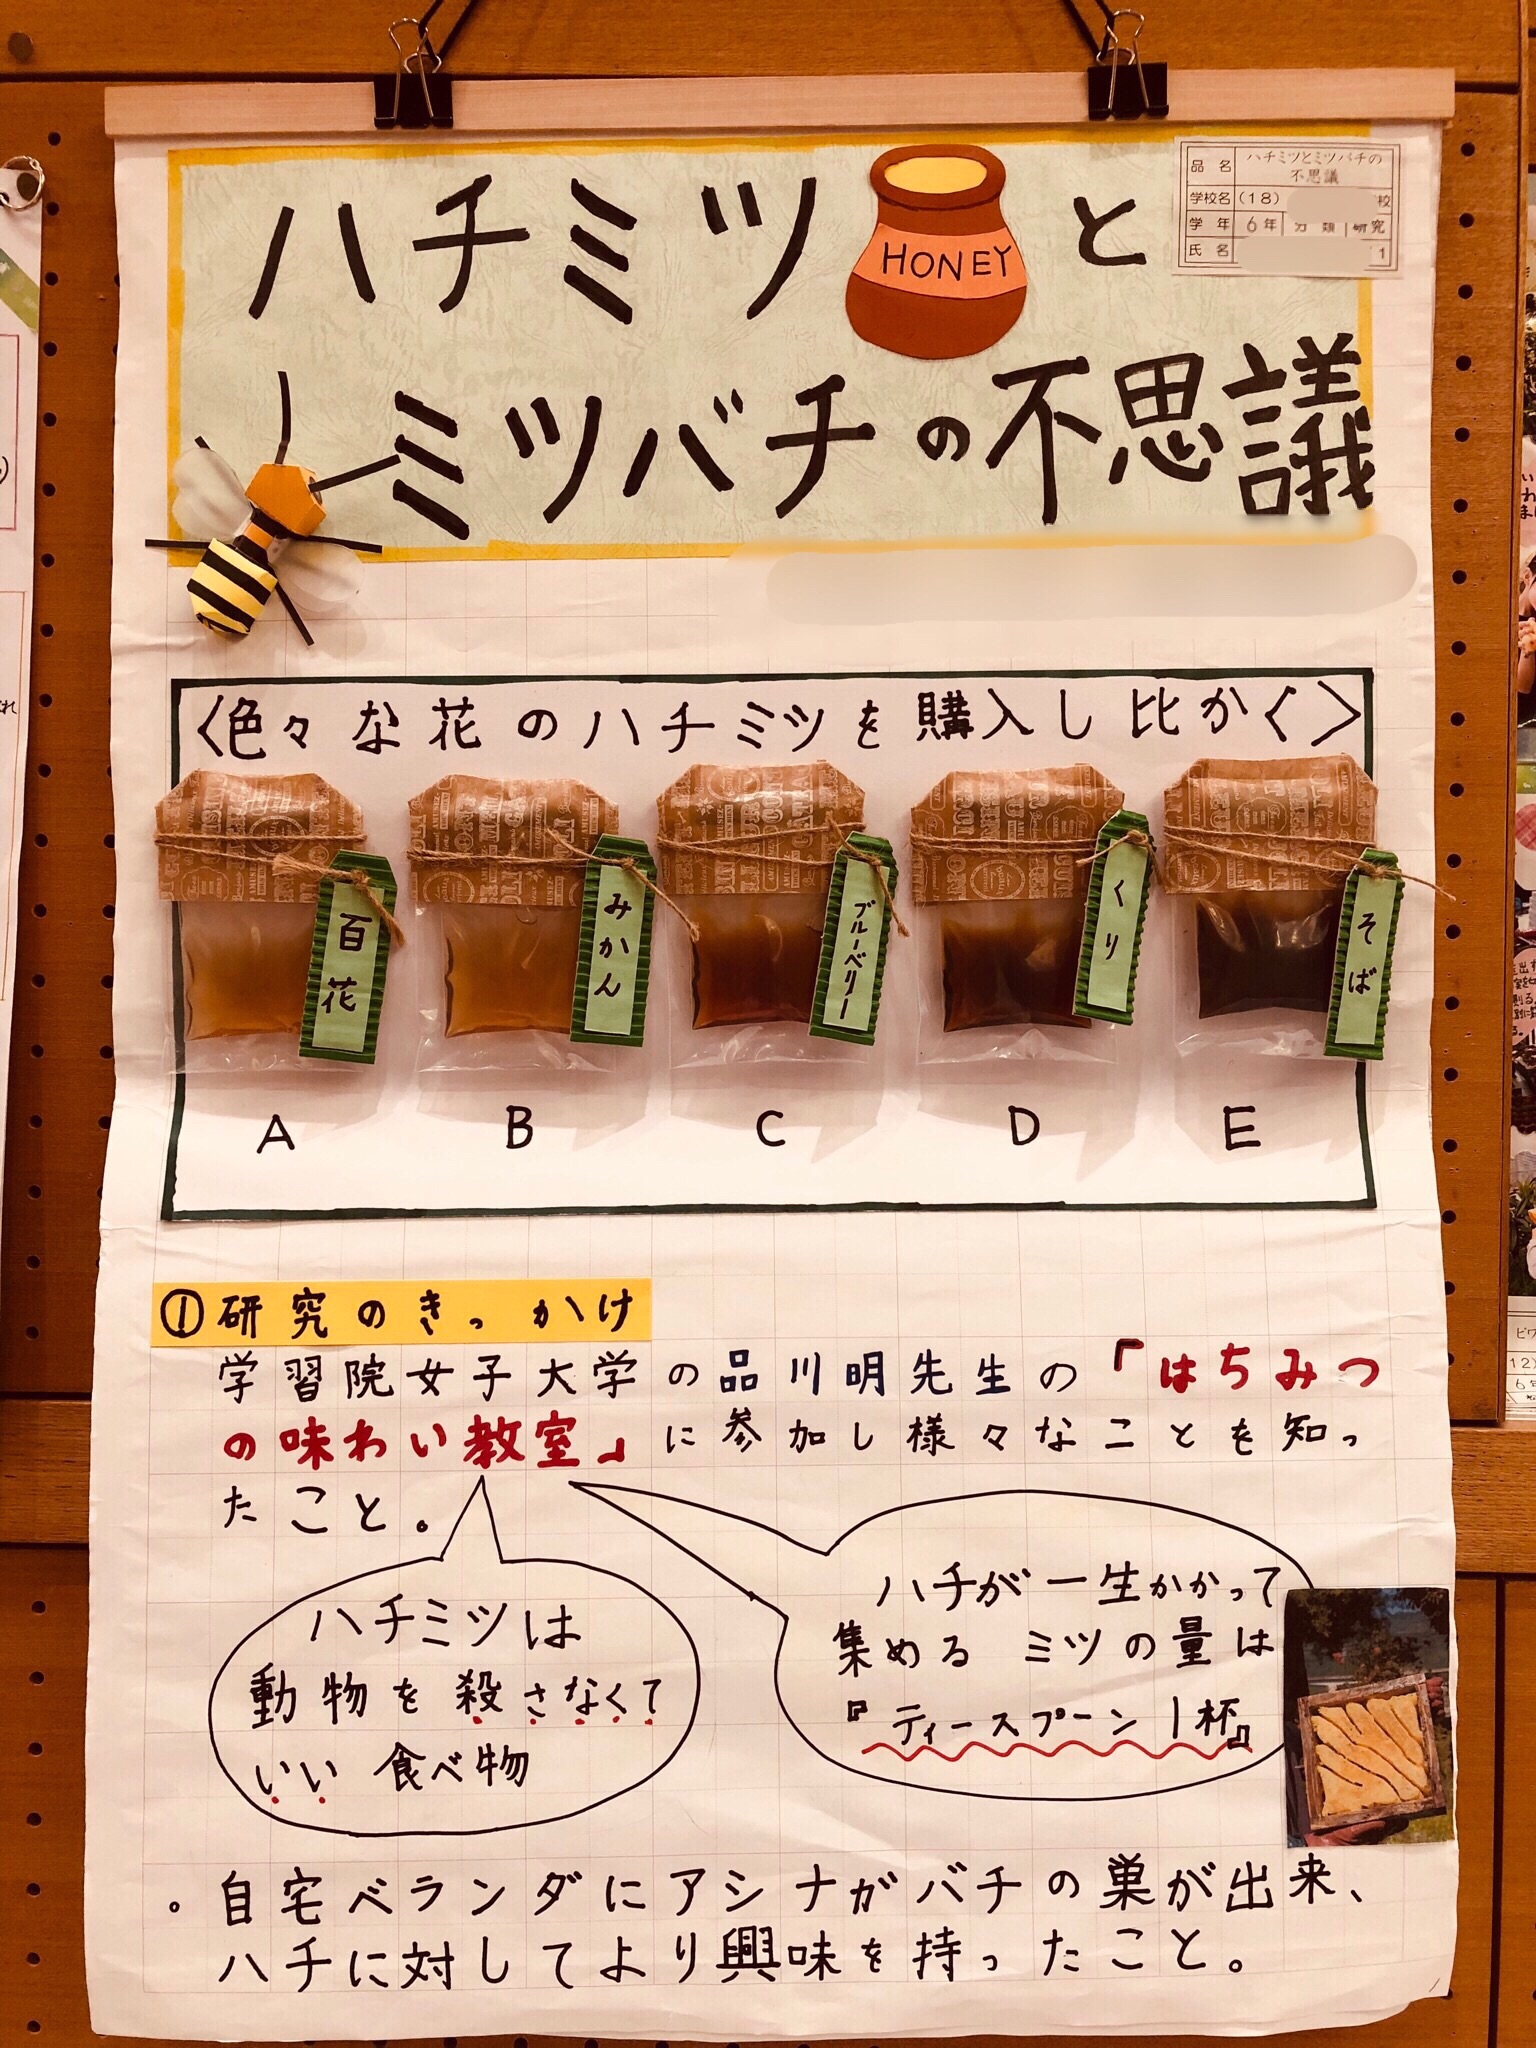 ハチミツ HONEY と
ミツバチの不思議
品名 ハチミツとミツバチの
不思議
学校名 (18) 校
学年 6年 分類 研究
氏名 1
〈色々な花のハチミツを購入し比かく〉
百花
みかん
ブルーベリー
くり
そば
A B C D E
①研究のきっかけ
学習院女子大学の品川明先生の「はちみつ
の味わい教室」に参加し様々なことを知っ
たこと。
ハチミツは
動物を殺さなくて
いい食べ物
ハチが一生かかって
集める ミツの量は
『ティースプーン1杯』
。自宅ベランダにアシナガバチの巣が出来、
ハチに対してより興味を持ったこと。